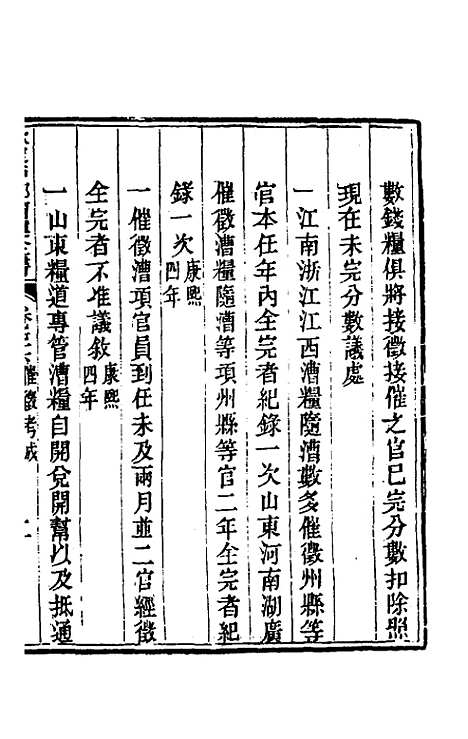 數錢糧俱將接徵接催之官已完分數扣除照
現在未完分數議處
一江南浙江江西漕糧隨漕數多催徵州縣等
官本任年內全完者紀錄一次山東河南湖廣
催徵漕糧隨漕等項州縣等官二年全完者紀
錄一次康熙四年
一催徵漕項官員到任未及兩月並二官經徵
全完者不准議敘康熙四年
一山東糧道專管漕糧自開兌開幫以及抵通
催徵考成